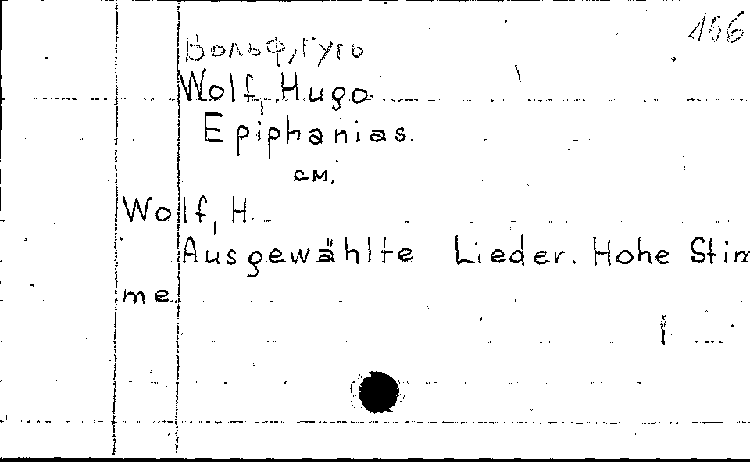 166
Вольф, Гуго
Wolf, Hugo
Epiphanias.
см.
Wolf, H.
Ausgewählte Lieder. Hohe Stim
me.